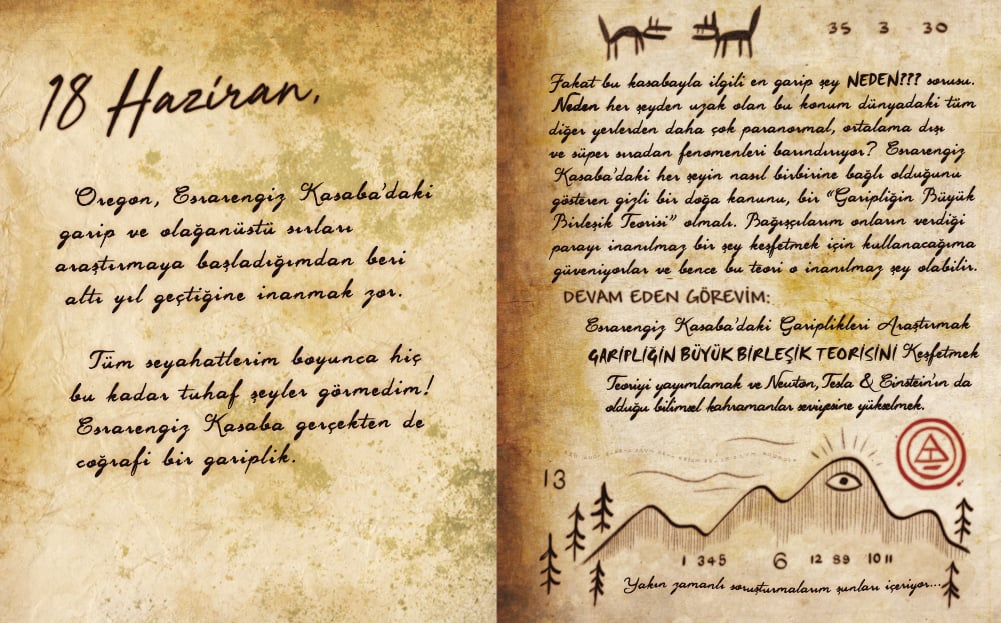 18 Haziran,
Oregon, Esrarengiz Kasaba'daki
garip ve olağanüstü sırları
araştırmaya başladığımdan beri
altı yıl geçtiğine inanmak zor.
Tüm seyahatlerim boyunca hiç
bu kadar tuhaf şeyler görmedim!
Esrarengiz Kasaba gerçekten de
coğrafi bir gariplik.
35 3 30
Fakat bu kasabayla ilgili en garip şey NEDEN??? sorusu.
Neden her şeyden uzak olan bu konum dünyadaki tüm
diğer yerlerden daha çok paranormal, ortalama dışı
ve süper sıradan fenomenleri barındırıyor? Esrarengiz
Kasaba'daki her şeyin nasıl birbirine bağlı olduğunu
gösteren gizli bir doğa kanunu, bir "Garipliğin Büyük
Birleşik Teorisi" olmalı. Bağışçılarım onların verdiği
parayı inanılmaz bir şey keşfetmek için kullanacağıma
güveniyorlar ve bence bu teori o inanılmaz şey olabilir.
DEVAM EDEN GÖREVİM:
Esrarengiz Kasaba'daki Gariplikleri Araştırmak
GARİPLİĞİN BÜYÜK BİRLEŞİK TEORİSİNİ Keşfetmek
Teoriyi yayımlamak ve Newton, Tesla & Einstein'ın da
olduğu bilimsel kahramanlar seviyesine yükselmek.
13
1 345 6 12 89 10 11
Yakın zamanlı soruşturmalarım şunları içeriyor...